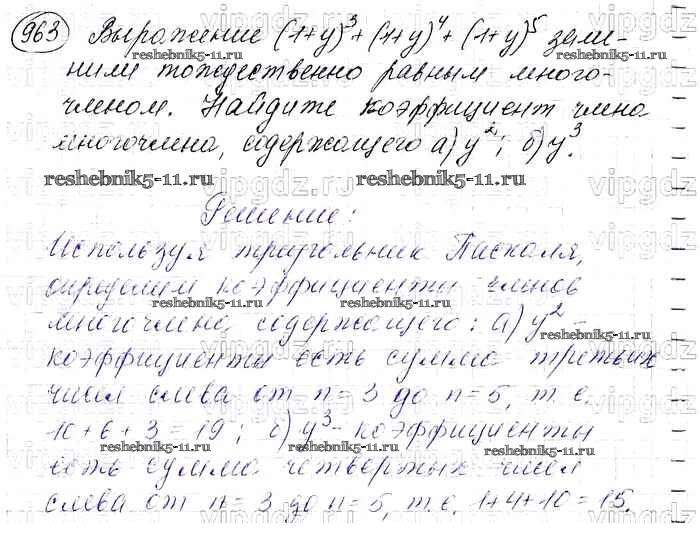 963 Выражение (1+y)³+(1+y)⁴+(1+y)⁵ заме-
reshebnik5-11.ru reshebnik5-11.ru
нили тождественно равным много-
членом. Найдите коэффициент члена
многочлена, содержащего а) y²; б) y³.
reshebnik5-11.ru reshebnik5-11.ru
Решение:
Используя треугольник Паскаля,
определим коэффициенты членов
reshebnik5-11.ru reshebnik5-11.ru
многочлена, содержащего: а) y² -
коэффициенты есть сумма третьих
чисел слева от n=3 до n=5, т.е.
10+6+3=19; б) y³- коэффициенты
reshebnik5-11.ru reshebnik5-11.ru
есть сумма четвертых чисел
слева от n=3 до n=5, т.е. 1+4+10=15.
vipgdz.ru